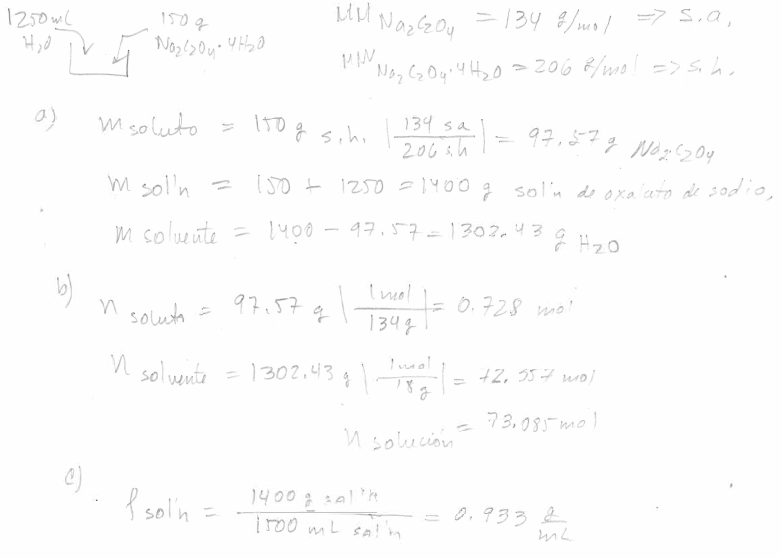 1250 mL 150 g
H2O Na2C2O4·4H2O
MM Na2C2O4 = 134 g/mol => s.a.
MM Na2C2O4·4H2O = 206 g/mol => s.h.
a) m soluto = 150 g s.h. | 134 sa / 206 s.h | = 97.57 g Na2C2O4
m sol'n = 150 + 1250 = 1400 g sol'n de oxalato de sodio,
m solvente = 1400 - 97.57 = 1302.43 g H2O
b) n soluto = 97.57 g | 1 mol / 134 g | = 0.728 mol
n solvente = 1302.43 g | 1 mol / 18 g | = 72.357 mol
n solución = 73.085 mol
c) ρ sol'n = 1400 g sol'n / 1500 mL sol'n = 0.933 g/mL